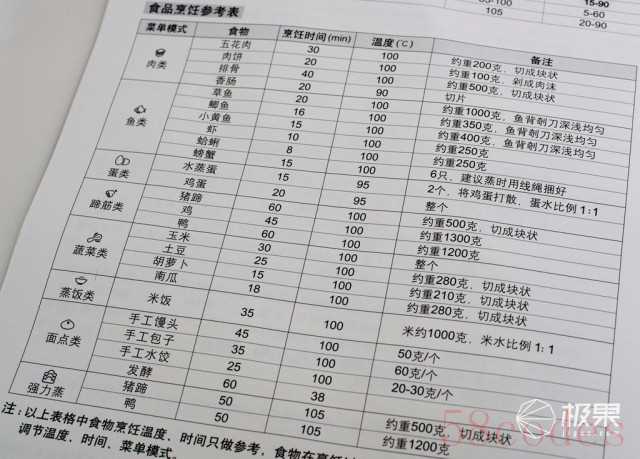 15-90
105 5-60
20-90
食品烹饪参考表
菜单模式 食物 烹饪时间(min) 温度(℃) 备注
肉类
五花肉 30 100 约重200克,切成块状
肉饼 20 100 约重100克,剁成肉沫
排骨 40 100 约重500克,切成块状
香肠 20 90 切片
鱼类
草鱼 20 100 约重1000克,鱼背剞刀深浅均匀
鲫鱼 16 100 约重350克,鱼背剞刀深浅均匀
小黄鱼 15 100 约重400克,鱼背剞刀深浅均匀
虾 10 100 约重250克
蛤蜊 8 100 约重250克
螃蟹 15 100 6只,建议蒸时用线绳捆好
蛋类
水蒸蛋 15 95 2个,将鸡蛋打散,蛋水比例1:1
鸡蛋 20 95 整个
蹄筋类
猪蹄 60 100 约重500克,切成块状
鸡 45 100 约重1300克
鸭 60 100 约重1200克
蔬菜类
玉米 30 100 整个
土豆 25 100 约重280克,切成块状
胡萝卜 15 100 约重210克,切成块状
南瓜 18 100 约重280克,切成块状
蒸饭类
米饭 35 100 米约1000克,米水比例1:1
面点类
手工馒头 45 100 50克/个
手工包子 35 100 60克/个
手工水饺 25 100 20-30克/个
发酵 60 38
强力蒸
猪蹄 50 105 约重500克,切成块状
鸭 50 105 约重1200克
注:以上表格中食物烹饪温度、时间只做参考,食物在烹饪
调节温度、时间、菜单模式。
极果